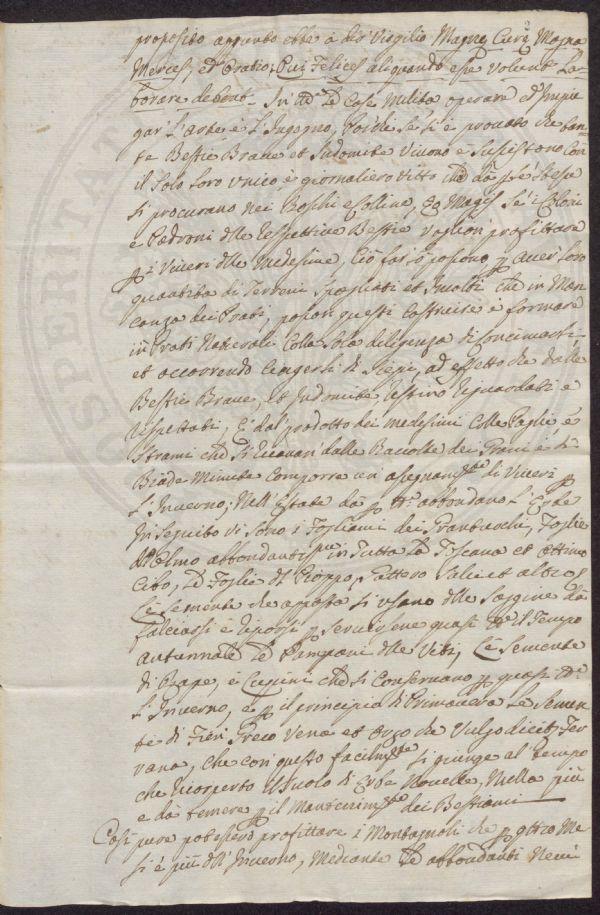 proposito appunto ebbe a dir Virgilio Magne Cure Magna
Merces, ed Oratio; Qui Felices aliquando esse volunt La-
borare debent. In tal Case milita operare ed Impie
gar L'arte e L'Ingegno, Poiche se si è provato che tan-
te Bestie Brave et Indomite Vivono e sussistono con
il solo loro unico e giornaliero vitto che da sé stesse
si procurano nei Boschi e colline, Eo Magis se i Coloni
e Padroni delle respettive Bestie voglion profittare
i Viveri delle medesime, Ciò far si possono p aver loro
quantità di Terreni spogliati et Incolti che in Man-
canza dei Prati, posson questi costruire e formare
in Prati Naturali colla sola diligenza di concimarli
et occorrendo cingerli di siepi, ad effetto che dalle
Bestie Brave, et Indomite restino riguardati e
rispettati, E dal prodotto dei medesimi colle Paglie e
Strami che si ricavan dalle Raccolte dei Grani e di
Biade Minute comporre un assegnam.to di Viveri p
L'Inverno; Nell'Estate da p tt.o abbondano L'Erbe
In seguito vi sono i Fogliami dei Granturchi, Foglie
d'Olmo abbondanti in tutta la Toscana et ottimo
Cibo, Le Foglie di Pioppo, Gattero Salci et altro,
Le semente che apposta si usano delle saggine da
falciarsi e riporsi p servirsene quasi tt.o il Tempo
autunnale Le Pampani delle Viti, Le Semente
di Rape, e Lupini che si conservano p quasi tt.o
L'Inverno, e p il principio di Primavera Le Semen-
te di Fien Greco Vena et orzo che Vulgo dicit: Fer-
rana, che con questo facilm.te si giunge al tempo
che ricoperto il suolo di Erbe Novelle, Nulla più
è da temere p il Mantenim.to dei Bestiami
Così pure potessero profittare i Montagnoli che p 4tro Me-
si e più dell'Inverno, Mediante Le abbondanti Nevi